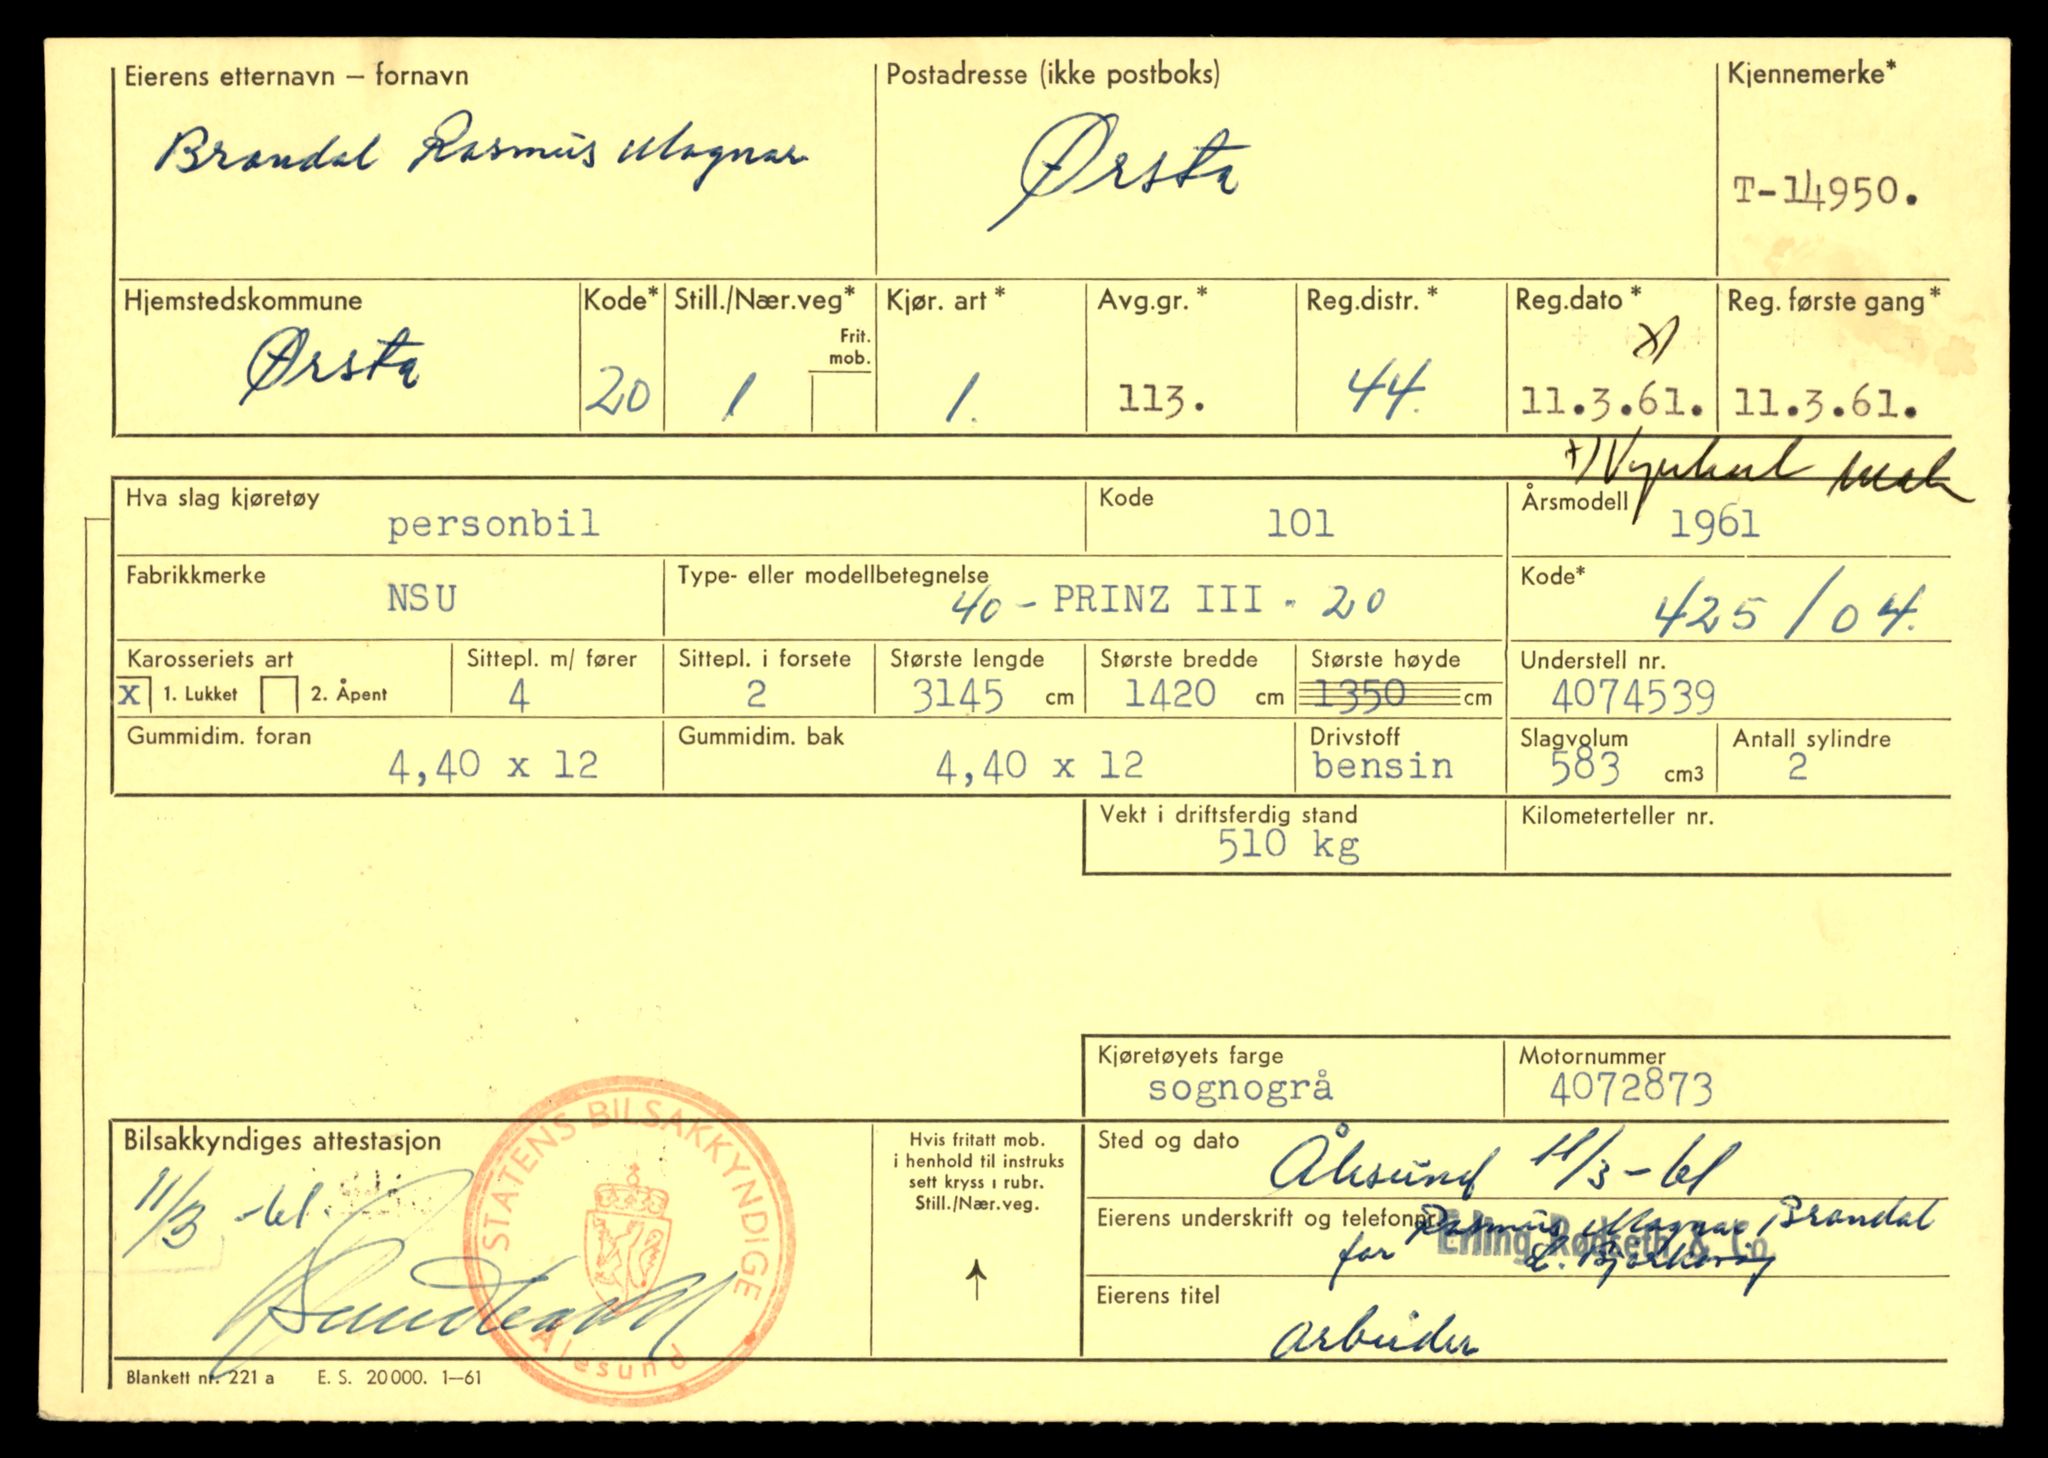 Eierens etternavn – fornavn
Postadresse (ikke postboks)
Kjennemerke*
Brandal Rasmus Magnar
Ørsta
T-14950.
Hjemstedskommune
Kode*
Still./Nær.veg*
Kjør. art *
Avg.gr. *
Reg.distr. *
Reg.dato *
Reg. første gang *
Frit. mob.
x)
Ørsta
20
1
1.
113.
44.
11.3.61.
11.3.61.
x)
Hva slag kjøretøy
personbil
Kode
101
Årsmodell
1961
Fabrikkmerke
NSU
Type- eller modellbetegnelse
40 - PRINZ III - 20
Kode*
425 / 04.
Karosseriets art
X 1. Lukket 2. Åpent
Sittepl. m/ fører
4
Sittepl. i forsete
2
Største lengde
3145 cm
Største bredde
1420 cm
Største høyde
1350 cm
Understell nr.
4074539
Gummidim. foran
4,40 x 12
Gummidim. bak
4,40 x 12
Drivstoff
bensin
Slagvolum
583 cm3
Antall sylindre
2
Vekt i driftsferdig stand
510 kg
Kilometerteller nr.
Kjøretøyets farge
sognogrå
Motornummer
4072873
Bilsakkyndiges attestasjon
11/3 -61.
STATENS BILSAKKYNDIGE
Ålesund
Hvis fritatt mob.
i henhold til instruks
sett kryss i rubr.
Still./Nær.veg.
Sted og dato
Ålesund 11/3-61
Eierens underskrift og telefonnr.
Rasmus Magnar Brandal
for Erling Rødseth & Co.
Eierens titel
arbeider
Blankett nr. 221 a E. S. 20000. 1–61